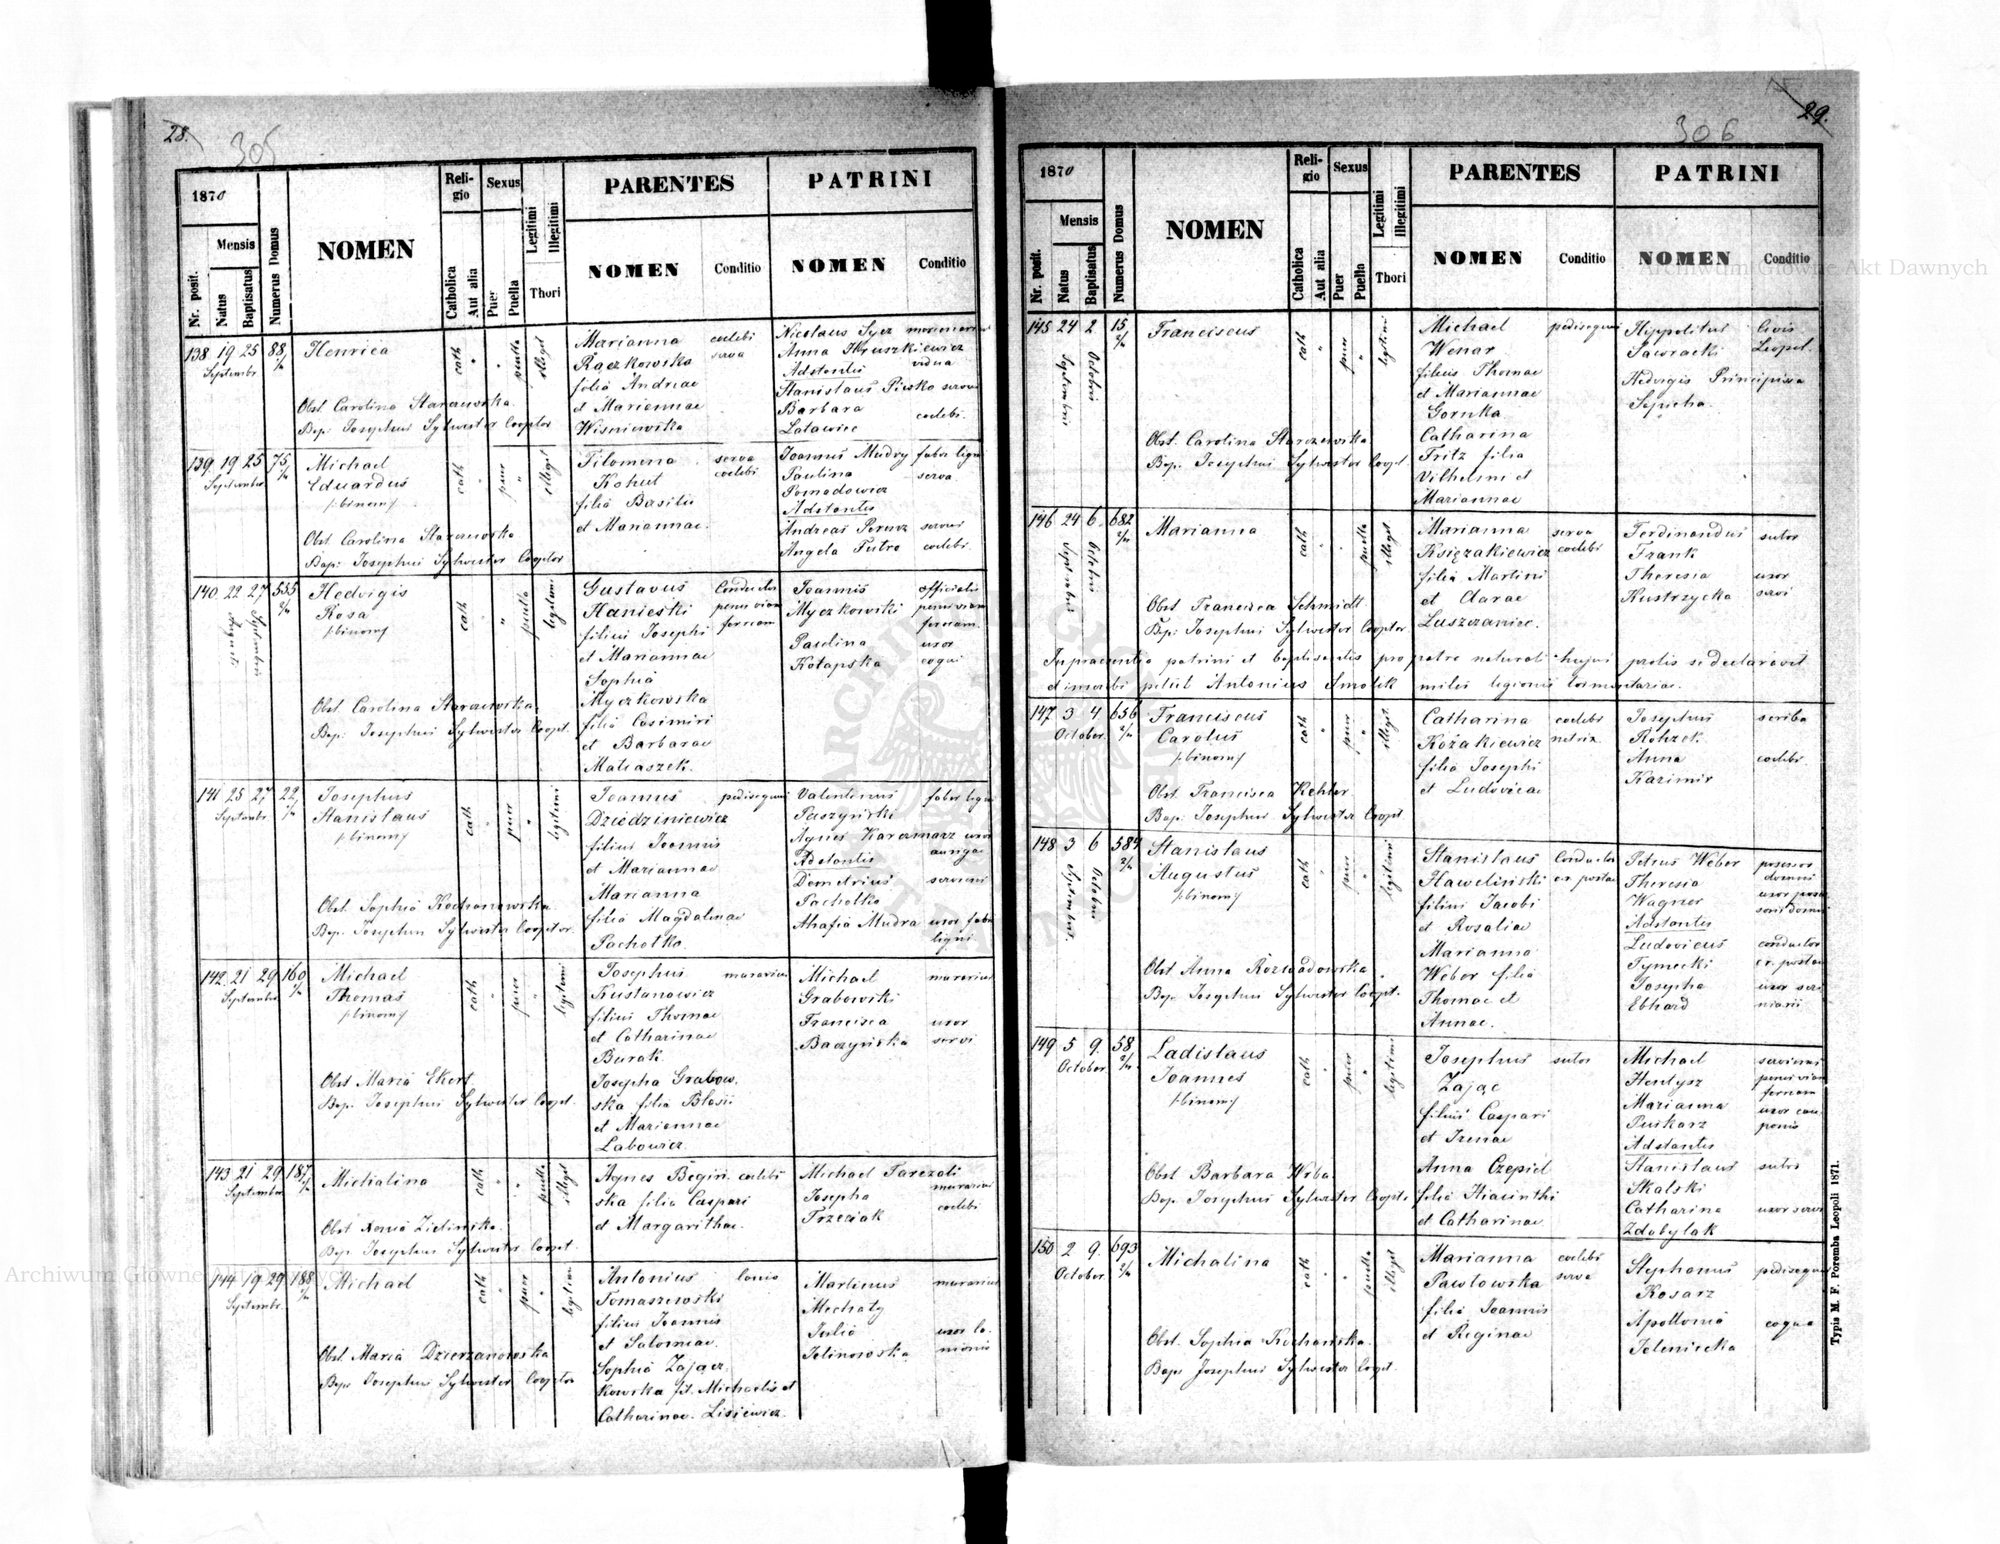 28.
305
1870
Mensis
Nr. posit.
Natus
Baptisatus
Numerus Domus
NOMEN
Religio
Catholica
Aut alia
Sexus
Puer
Puella
Legitimi
Illegitimi
Thori
PARENTES
NOMEN
Conditio
PATRINI
NOMEN
Conditio
138 19 25 88
Septembr
Henrica
cath
puella
illegit
Marianna
Rączkowska
filia Andreae
et Mariannae
Wisniewska
coelebs
serva
Nicolaus Sycz
Anna Hruszkiewicz
vidua
Adstantes
Stanislaus Piesko
Barbara
coelebs
Latawiec
Obst. Carolina Starzewska
Bap: Josephus Sylwester Cooptor
139 19 25 75
September
Michael
Eduardus
/:binom:/
cath
puer
illegit
Filomena
Kohut
filia Basilii
et Mariannae.
serva
coelebs
Joannes Mudry faber lign
Paulina
serva
Adstantes
Andreas
Angela Futro
coelebs.
Obst Carolina Starzewska
Bap: Josephus Sylwester Cooptor
140. 22 27 555
Hedvigis
Rosa
/:binom:/
cath
puella
legitimi
Gustavus
filius Josephi
et Mariannae
Sophia
Myczkowska
filia Casimiri
et Barbarae
Matiaszek.
Conductor
penes viam
ferream
Joannes
Myczkowski
Paulina
officialis
penes viam
ferream.
uxor
coqui
Obst Carolina Starzewska
Bap: Josephus Sylwester Coopt.
141 25 27 22
Septembr
Josephus
Stanislaus
/:binom:/
cath
puer
legitimi
Joannes
Dziedziniewicz
filius Joannis
et Mariannae
Marianna
filia Magdalenae
Pachotka.
pedisequus
Valentinus
Paszyński
Agnes Karczmarz uxor
aurigae
Adstantes
Demetrius
Pachotko
Ahafia Mudra uxor fabri
ligni
faber ligni
Obst. Sophia Kochanowska
Bap. Josephus Sylwester Cooptor.
142. 21 29 160
September
Michael
Thomas
/:binom:/
cath
puer
legitimi
Josephus
Kustanowicz
filius Thomae
et Catharinae
Burak.
Josepha Grabow.
ska filia Blasii
et Mariannae
Labowicz.
murarius
Michael
Grabowski
Francisca
Baczyńska
murarius
uxor
servi
Obst Maria Ekert
Bap. Josephus Sylwester Coopt.
143 21 29 187
September
Michalina
cath
puella
illegit
Agnes Begin. coelebs
ska filia Caspari
et Margarithae.
Michael
murarius
Josepha
coelebs
Trzeciak
Obst Zielinska.
Bap. Josephus Sylwester Coopt.
144 19 29 188
Septembr.
Michael
cath
puer
legitimi
Antonius
Tomaszewski
filius Joannis
et Salomeae.
Sophia Zającz.
kowska fil. Michaelis et
Catharinae Lisiewicz.
lanio
Martinus
Mechaty
Julia
Jelinowska
murarius
uxor la.
nionis
Obst. Maria Dzierzanowska
Bap. Josephus Sylwester Cooptor
29.
306
1870
Mensis
Nr. posit.
Natus
Baptisatus
Numerus Domus
NOMEN
Religio
Catholica
Aut alia
Sexus
Puer
Puella
Legitimi
Illegitimi
Thori
PARENTES
NOMEN
Conditio
PATRINI
NOMEN
Conditio
145 24 2 15
Septembris
Octobris
Franciscus
cath
puer
legitimi
Michael
Wenar
filius Thomae
et Mariannae
Gornka
Catharina
Fritz filia
Vilhelmi et
Mariannae
pedisequus
Hyppolitus
Hedvigis Principissa
Sapieha.
Civis
Leopol.
Obst. Carolina Starzewska
Bap. Josephus Sylwester Coopt.
146 24 6. 682
Septembris
Octobris
Marianna
cath
puella
illegit
Marianna
Księzakiewicz
filia Martini
et Clarae
Luszczaniec.
serva
coelebs
Ferdinandus
Frank
Theresia
Kustrzycka
sutor
uxor
servi
Obst Francisca Schmidt.
Bap: Josephus Sylwester Cooptor
In praesentia patrini et baptisantis pro patre naturali hujus prolis se declaravit
et inscribi petiit Antonius Smolik miles legionis tormentariae.
147 3 4 656
October.
Franciscus
Carolus
/:binom:/
cath
puer
illegit.
Catharina
Kożakiewicz
filia Josephi
et Ludovicae
coelebs
Josephus
Rohzek.
Anna
Kazimir
scriba
coelebs.
Obst. Francisca Kehler
Bap. Josephus Sylwester Coopt
148 3 6 584
Octobris
Stanislaus
Augustus
/:binom:/
cath
puer
legitimi
Stanislaus
Hawelinski
filius Jacobi
et Rosaliae
Marianna
Weber filia
Thomae et
Annae.
Conductor
c.r. postae
Petrus Weber
Theresia
Wagner
Adstantes
Ludovicus
Tymecki
Josepha
Ebhard
conductor
c.r. postae
Obst Anna Rozwadowska.
Bap. Josephus Sylwester Coopt.
149 5 9. 58
October
Ladislaus
Joannes
/:binom:/
cath
puer
legitimi
Josephus
Zając
filius Caspari
et Irenae
Anna Czepiel
filia Hiacinthi
et Catharinae
sutor
Michael
Henlysz
Marianna
Puskarz
Adstantes
Stanislaus
Skalski
Catharina
Zdobylak
penes viam
ferream
uxor cau.
ponis
sutor
uxor servi
Obst Barbara Wrba.
Bap. Josephus Sylwester Coopt.
150 2 9. 693
October
Michalina
cath
puella
illegit
Marianna
Pawłowska
filia Joannis
et Reginae
coelebs
serva
Stephanus
Kosarz
Apollonia
Jeleniecka
pedisequus
coqua
Obst. Sophia Kochanska.
Bap. Josephus Sylwester Coopt.
Typis M. F. Poremba Leopoli 1871.
Archiwum Główne Akt Dawnych
Archiwum Główne Akt Dawnych